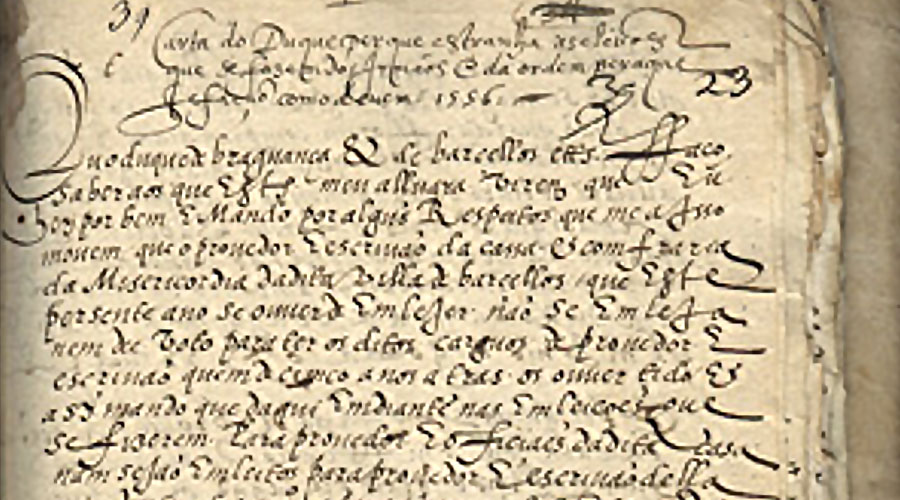 31
Carta do Duque perque estranha as eleicoes
que se fosem dos Irmãos E da ordem peraque
se fação como devem 1556.
23
Quo duque de braguança & de barcellos ets. ffaco
saber aos que Este meu alluara Virem que Eu
ey por bem E Mando por alguns Respeitos que me a Isso
mouem que o prouedor E escriuão da cassa & comfraria
da Misericordia dadita Villa de barcellos que Este
persente ano se ouuer de Emlejer não se Emleja
nem de Voto para ter os ditos carguos de prouedor E
escriuão quem de cinco anos atras os ouuer tido Es
asy mando que daqui Emdiante nas Emleições que
se fizerem Para prouedor E officiaes dadita casa
nam sejão Emleitos para prouedor E escriuão della